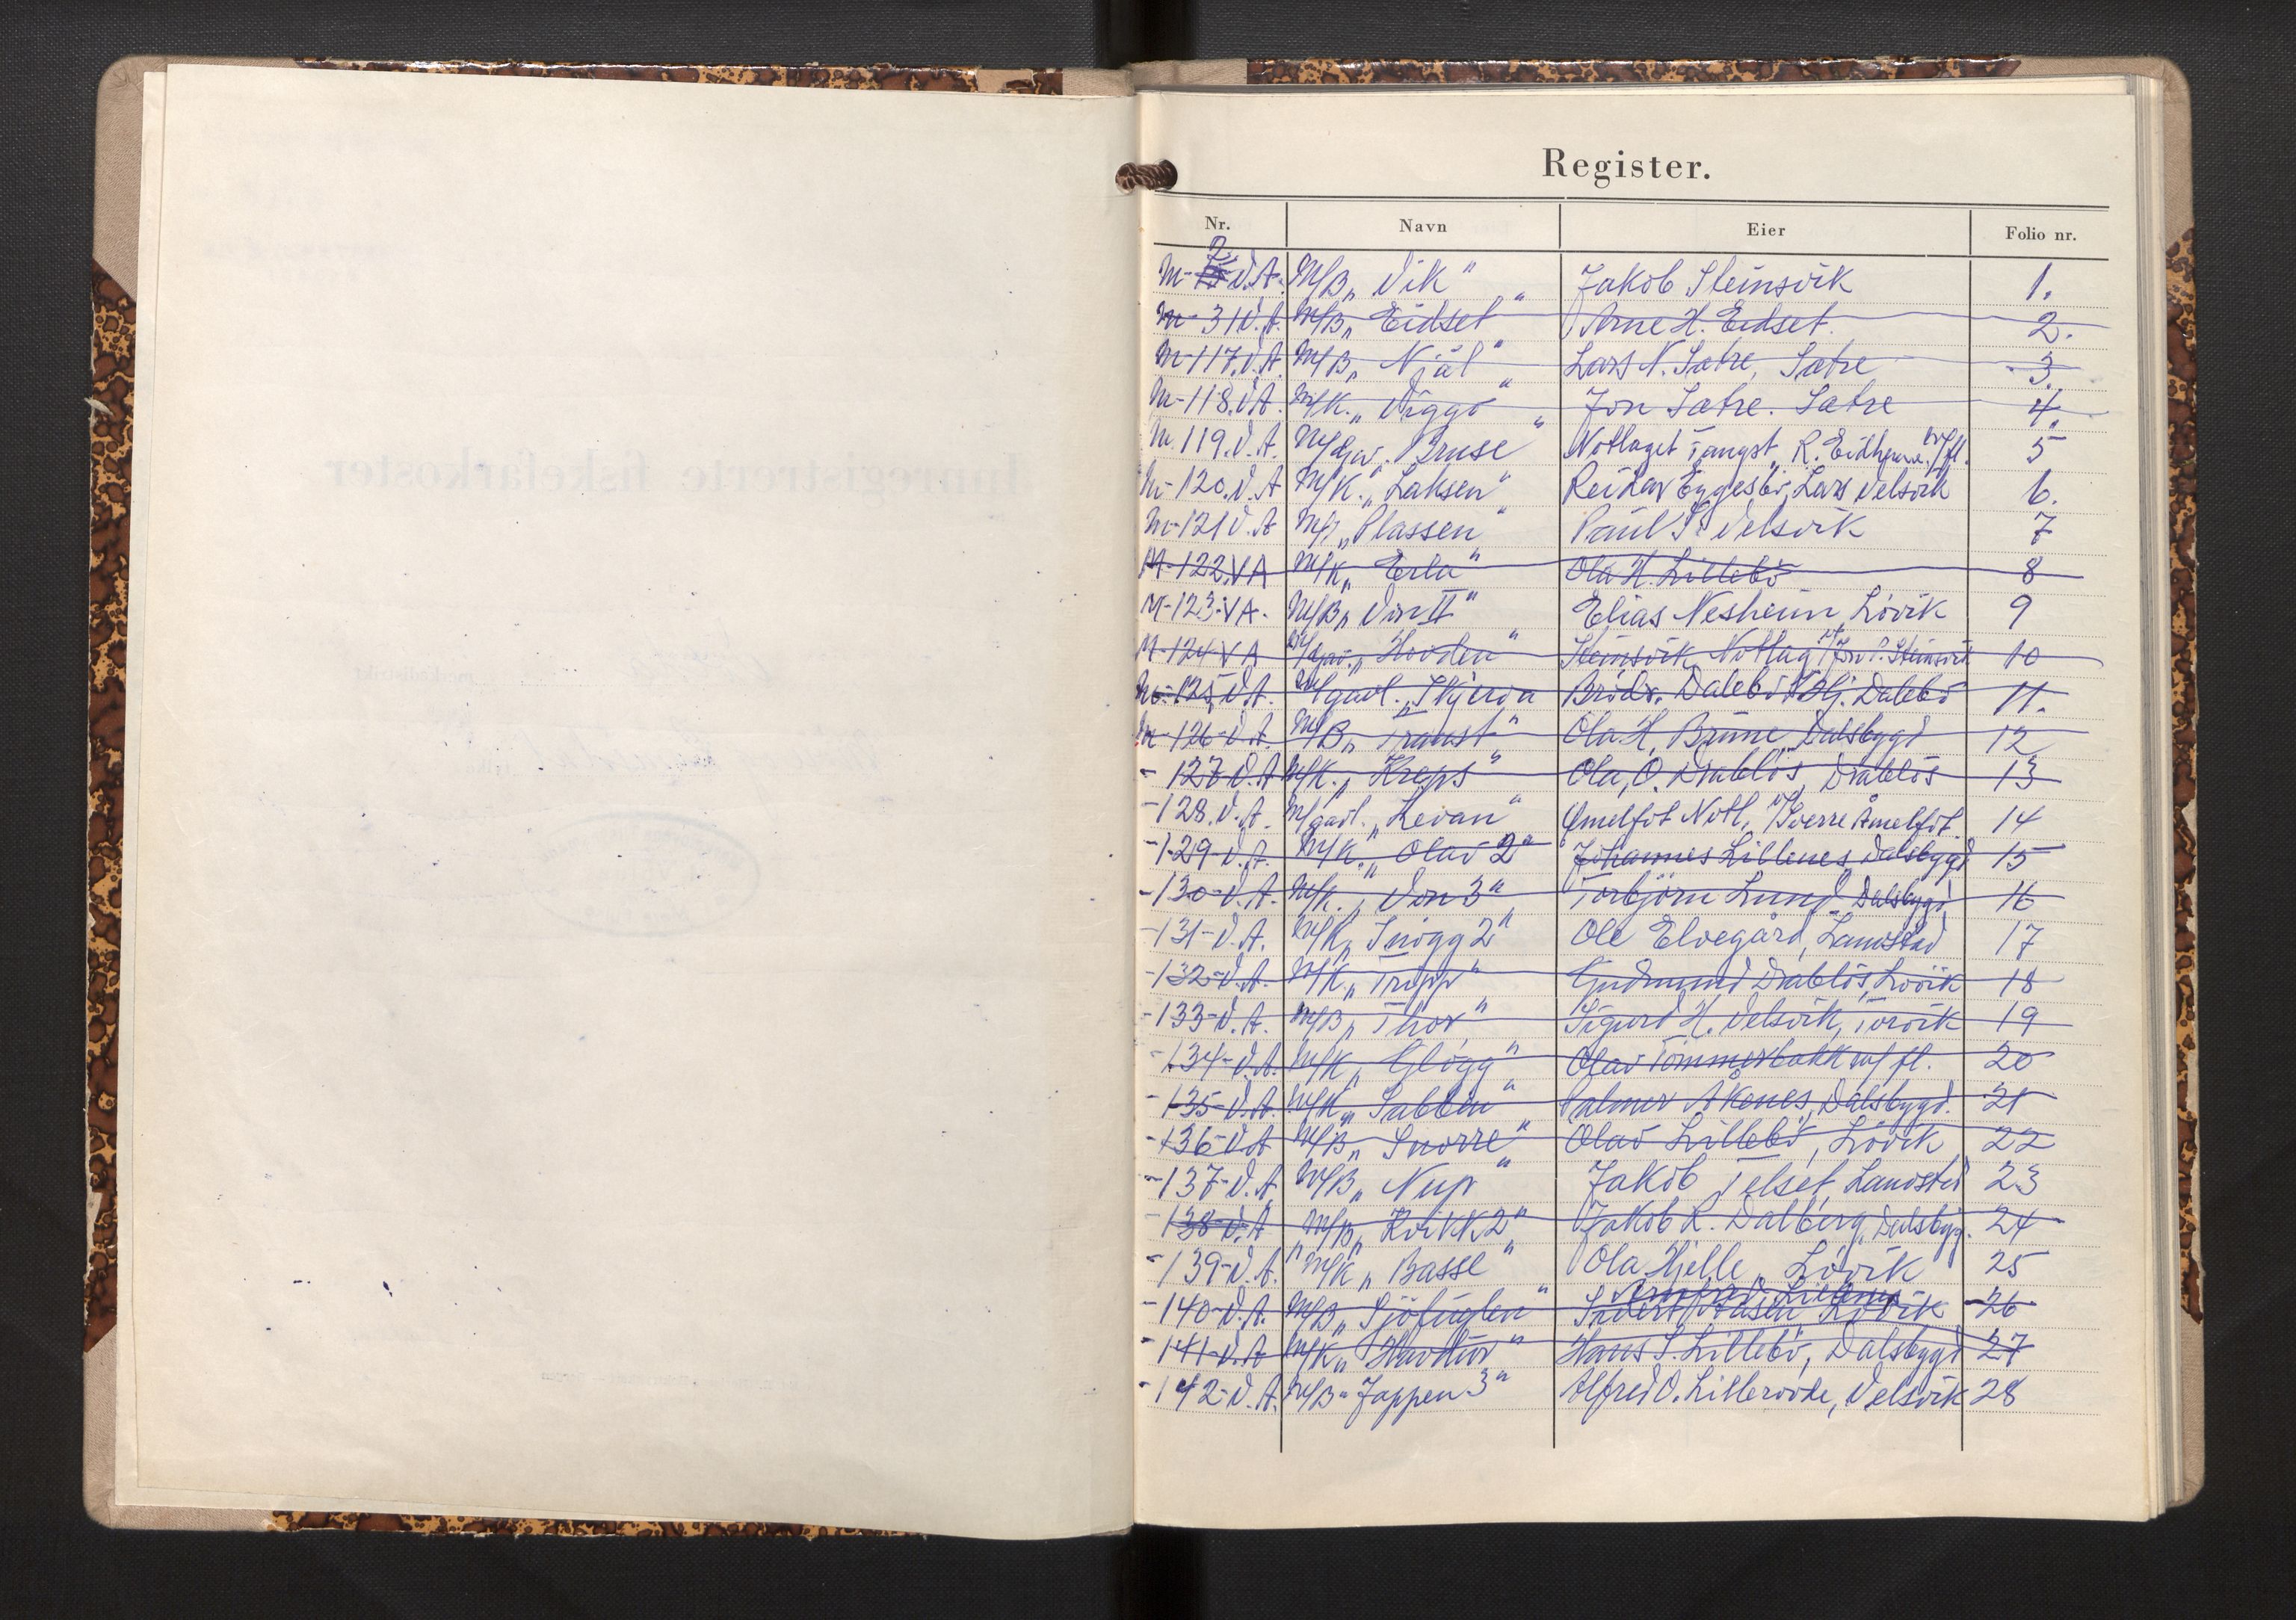 Register.
Nr. Navn Eier Folio nr.
M-2-V.A. M/B „Vik“ Jakob Steinsvik 1.
M-31V.A. M/B „Eidset“ Arne H. Eidset. 2.
M-117.V.A. M/B „Njål“ Lars N. Satre, Satre 3.
M-118.V.A. M/K. „Viggo“ Jon Satre. Satre 4.
M.119.V.A. „Bruse“ Notlaget Fangst, R. 5
M-120.V.A M/K. „Laksen“ Reidar Eggesbö, Lars Velsvik 6.
M-121V.A „Plassen“ Paul S. Velsvik 7
M-122.VA M/K „Erla“ Ola H. Lillebö 8
M-123-VA. M/B „Von II“ Elias Nesheim, Lövik 9
M-124-VA „Hovden“ Steinsvik Notlag v/Jon P. Steinsvik 10
M-125,V.A. M/gavl. „Skjerva Brödr. Dalebö v/Hj. Dalebö 11.
M-126-V.A. M/B „Traust“ Ola H. Brune, Dalsbygd 12
- 127-V.A M/K. „Kreps“ Ola, O. Drabløs, Drabløs 13
-128.V.A. M/gavl. „Levan“ Åmelfot Notl, v/Sverre Åmelfot. 14
-129-V.A. M/K. „Olav 2“ Johannes Lillenes, Dalsbygd 15
-130-V.A. M/K. „Von 3“ Torbjörn Lund, Dalsbygd 16
-131-V.A. M/K „Snögg 2“ Ole Elvegård, Lauvstad 17
-132-V.A. M/K „Tripp“ Gudmund Drabløs, Lövik 18
-133-V.A. M/B „Thor“ Sigurd H. Velsvik, Torvik 19
-134-V.A. M/K „Glögg“ Olav Tömmerbakk m/fl. 20
-135-V.A. M/K „Sabben“ Palmer Åkenes, Dalsbygd. 21
-136-V.A M/B „Snorre“ Olav Lillebö, Lövik 22
-137-V.A. M/B „Nup“ Jakob Telset, Lauvstad 23
-138-V.A „M/B „Kvikk 2“ Jakob R. Dalberg, Dalsbygd. 24
-139-V.A. M/K „Basse“ Ola Hjelle, Lövik 25
-140-V.A. M/B „Sjöfuglen“ Lövik 26
-141-V.A M/K „Havthor“ Hans S. Lillebö, Dalsbygd 27
-142-V.A. M/B „Jappen 3“ Alfred O. Lillerovde, Velsvik 28